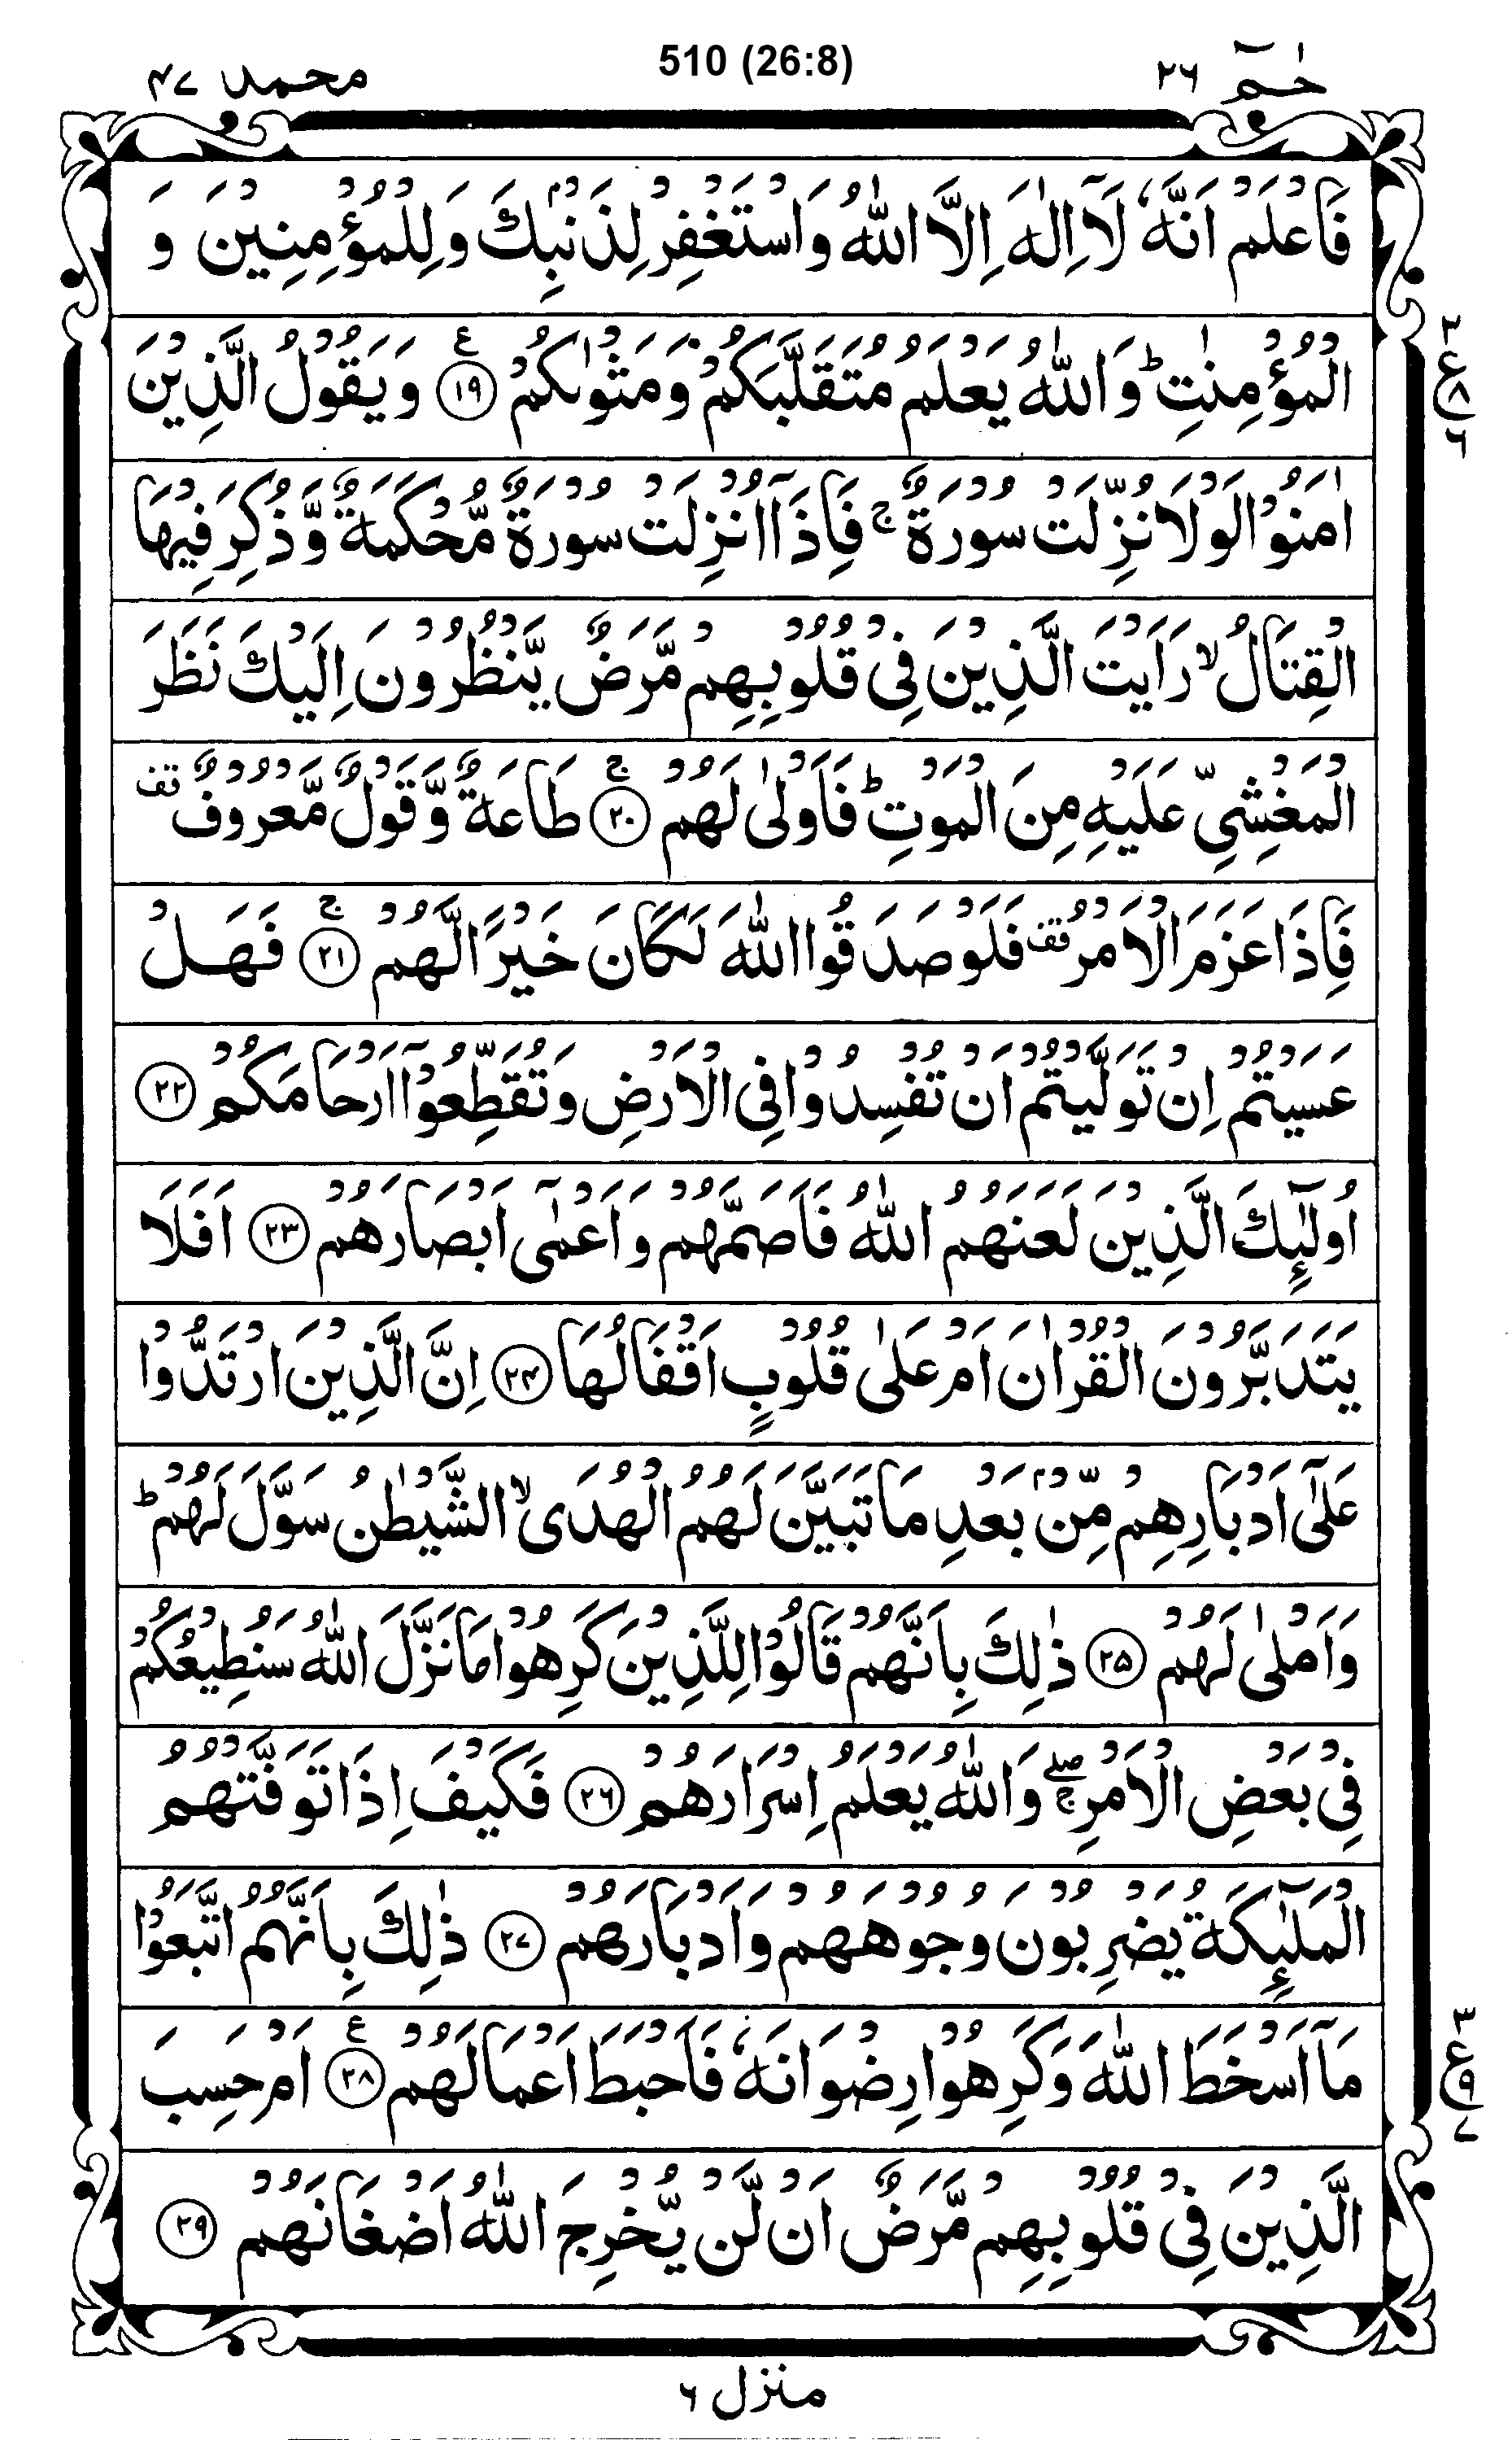 حٰمٓ ۲۶
510 (26:8)
محمد ۴۷
فَاعْلَمْ اَنَّهٗ لَاۤ اِلٰهَ اِلَّا اللّٰهُ وَاسْتَغْفِرْ لِذَنْۢبِكَ وَلِلْمُؤْمِنِيْنَ وَ
الْمُؤْمِنٰتِ ؕ وَاللّٰهُ يَعْلَمُ مُتَقَلَّبَكُمْ وَمَثْوٰىكُمْ ۧ ﴿۱۹﴾ وَيَقُوْلُ الَّذِيْنَ
اٰمَنُوْا لَوْلَا نُزِّلَتْ سُوْرَةٌ ۚ فَاِذَاۤ اُنْزِلَتْ سُوْرَةٌ مُّحْكَمَةٌ وَّذُكِرَ فِيْهَا
الْقِتَالُ ۙ رَاَيْتَ الَّذِيْنَ فِيْ قُلُوْبِهِمْ مَّرَضٌ يَّنْظُرُوْنَ اِلَيْكَ نَظَرَ
الْمَغْشِيِّ عَلَيْهِ مِنَ الْمَوْتِ ؕ فَاَوْلٰى لَهُمْ ۚ ﴿۲۰﴾ طَاعَةٌ وَّقَوْلٌ مَّعْرُوْفٌ قف
فَاِذَا عَزَمَ الْاَمْرُ قف فَلَوْ صَدَقُوا اللّٰهَ لَكَانَ خَيْرًا لَّهُمْ ۚ ﴿۲۱﴾ فَهَلْ
عَسَيْتُمْ اِنْ تَوَلَّيْتُمْ اَنْ تُفْسِدُوْا فِي الْاَرْضِ وَتُقَطِّعُوْۤا اَرْحَامَكُمْ ﴿۲۲﴾
اُولٰٓئِكَ الَّذِيْنَ لَعَنَهُمُ اللّٰهُ فَاَصَمَّهُمْ وَاَعْمٰۤى اَبْصَارَهُمْ ﴿۲۳﴾ اَفَلَا
يَتَدَبَّرُوْنَ الْقُرْاٰنَ اَمْ عَلٰى قُلُوْبٍ اَقْفَالُهَا ﴿۲۴﴾ اِنَّ الَّذِيْنَ ارْتَدُّوْا
عَلٰۤى اَدْبَارِهِمْ مِّنْۢ بَعْدِ مَا تَبَيَّنَ لَهُمُ الْهُدَى ۙ الشَّيْطٰنُ سَوَّلَ لَهُمْ ؕ
وَاَمْلٰى لَهُمْ ﴿۲۵﴾ ذٰلِكَ بِاَنَّهُمْ قَالُوْا لِلَّذِيْنَ كَرِهُوْا مَا نَزَّلَ اللّٰهُ سَنُطِيْعُكُمْ
فِيْ بَعْضِ الْاَمْرِ ۖۚ وَاللّٰهُ يَعْلَمُ اِسْرَارَهُمْ ﴿۲۶﴾ فَكَيْفَ اِذَا تَوَفَّتْهُمُ
الْمَلٰٓئِكَةُ يَضْرِبُوْنَ وُجُوْهَهُمْ وَاَدْبَارَهُمْ ﴿۲۷﴾ ذٰلِكَ بِاَنَّهُمُ اتَّبَعُوْا
مَاۤ اَسْخَطَ اللّٰهَ وَكَرِهُوْا رِضْوَانَهٗ فَاَحْبَطَ اَعْمَالَهُمْ ۧ ﴿۲۸﴾ اَمْ حَسِبَ
الَّذِيْنَ فِيْ قُلُوْبِهِمْ مَّرَضٌ اَنْ لَّنْ يُّخْرِجَ اللّٰهُ اَضْغَانَهُمْ ﴿۲۹﴾
۲
ع
۸
۶
۳
ع
۹
۷
منزل ۶